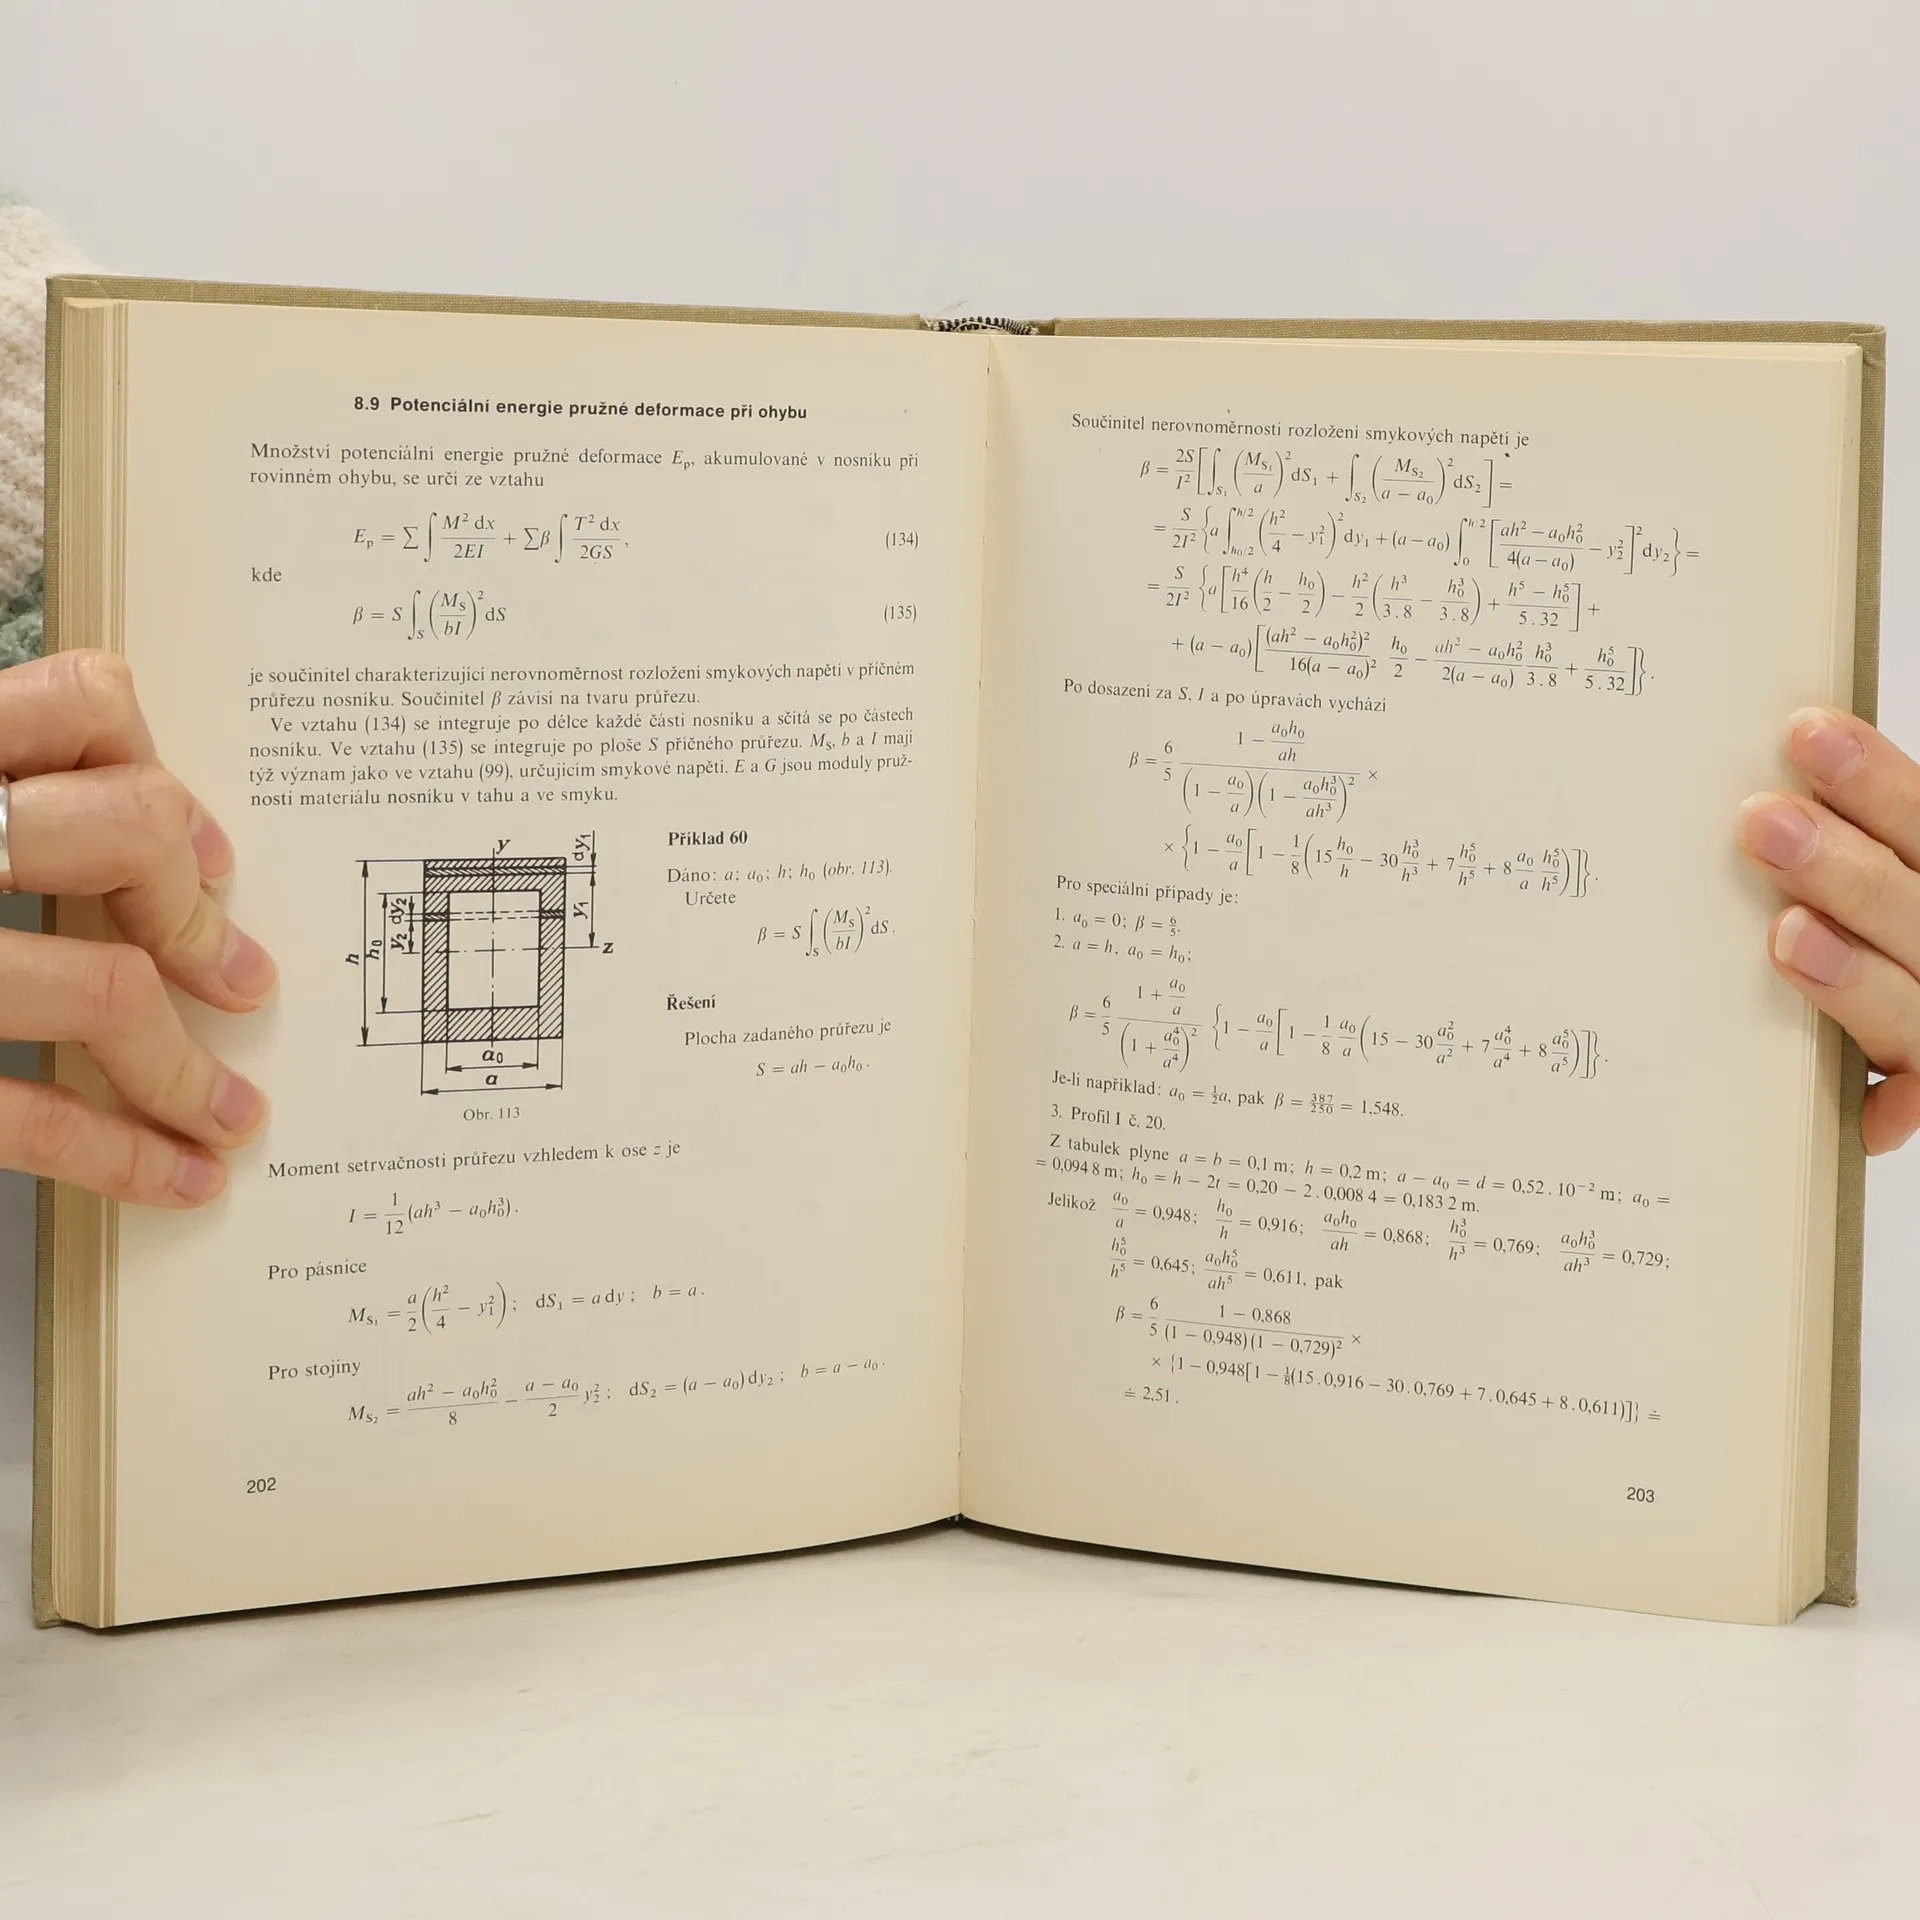 8.9 Potenciální energie pružné deformace při ohybu
Množství potenciální energie pružné deformace Eₚ, akumulované v nosníku při
rovinném ohybu, se určí ze vztahu
Eₚ = ∑ ∫ M² dx / 2EI + ∑β ∫ T² dx / 2GS , (134)
kde
β = S ∫_S (M_S / bI)² dS (135)
je součinitel charakterizující nerovnoměrnost rozložení smykových napětí v příčném
průřezu nosníku. Součinitel β závisí na tvaru průřezu.
Ve vztahu (134) se integruje po délce každé části nosníku a sčítá se po částech
nosníku. Ve vztahu (135) se integruje po ploše S příčného průřezu. M_S, b a I mají
týž význam jako ve vztahu (99), určujícím smykové napětí. E a G jsou moduly pruž-
nosti materiálu nosníku v tahu a ve smyku.
y dy₁
h h₀ y₂ dy₂ y₁ z
a₀
a
Obr. 113
Příklad 60
Dáno: a; a₀; h; h₀ (obr. 113).
Určete
β = S ∫_S (M_S / bI)² dS .
Řešení
Plocha zadaného průřezu je
S = ah − a₀h₀ .
Moment setrvačnosti průřezu vzhledem k ose z je
I = 1/12 (ah³ − a₀h₀³) .
Pro pásnice
M_S₁ = a/2 (h²/4 − y₁²) ; dS₁ = a dy ; b = a .
Pro stojiny
M_S₂ = (ah² − a₀h₀²)/8 − (a − a₀)/2 y₂² ; dS₂ = (a − a₀) dy₂ ; b = a − a₀ .
202
Součinitel nerovnoměrnosti rozložení smykových napětí je
β = 2S/I² [∫_S₁ (M_S₁/a)² dS₁ + ∫_S₂ (M_S₂/(a − a₀))² dS₂] =
= S/2I² {a ∫_{h₀/2}^{h/2} (h²/4 − y₁²)² dy₁ + (a − a₀) ∫_0^{h/2} [(ah² − a₀h₀²)/4(a − a₀) − y₂²]² dy₂} =
= S/2I² {a [h⁴/16 (h/2 − h₀/2) − h²/2 (h³/3.8 − h₀³/3.8) + (h⁵ − h₀⁵)/5.32] +
+ (a − a₀) [(ah² − a₀h₀²)²/16(a − a₀)² h₀/2 − (ah² − a₀h₀²)/2(a − a₀) h₀³/3.8 + h₀⁵/5.32]} .
Po dosazení za S, I a po úpravách vychází
β = 6/5 (1 − a₀h₀/ah) / ((1 − a₀/a)(1 − a₀h₀³/ah³)²) ×
× {1 − a₀/a [1 − 1/8 (15 h₀/h − 30 h₀³/h³ + 7 h₀⁵/h⁵ + 8 a₀/a h₀⁵/h⁵)]} .
Pro speciální případy je:
1. a₀ = 0; β = 6/5.
2. a = h, a₀ = h₀;
β = 6/5 (1 + a₀/a) / (1 + a₀⁴/a⁴)² {1 − a₀/a [1 − 1/8 a₀/a (15 − 30 a₀²/a² + 7 a₀⁴/a⁴ + 8 a₀⁵/a⁵)]} .
Je-li například: a₀ = ½a, pak β = 387/250 = 1,548.
3. Profil I č. 20.
Z tabulek plyne a = b = 0,1 m; h = 0,2 m; a − a₀ = d = 0,52 . 10⁻² m; a₀ =
= 0,094 8 m; h₀ = h − 2t = 0,20 − 2 . 0,008 4 = 0,183 2 m.
Jelikož a₀/a = 0,948; h₀/h = 0,916; a₀h₀/ah = 0,868; h₀³/h³ = 0,769; a₀h₀³/ah³ = 0,729;
h₀⁵/h⁵ = 0,645; a₀h₀⁵/ah⁵ = 0,611, pak
β = 6/5 (1 − 0,868) / ((1 − 0,948) (1 − 0,729)²) ×
× {1 − 0,948[1 − ⅛(15 . 0,916 − 30 . 0,769 + 7 . 0,645 + 8 . 0,611)]} ≐
≐ 2,51 .
203